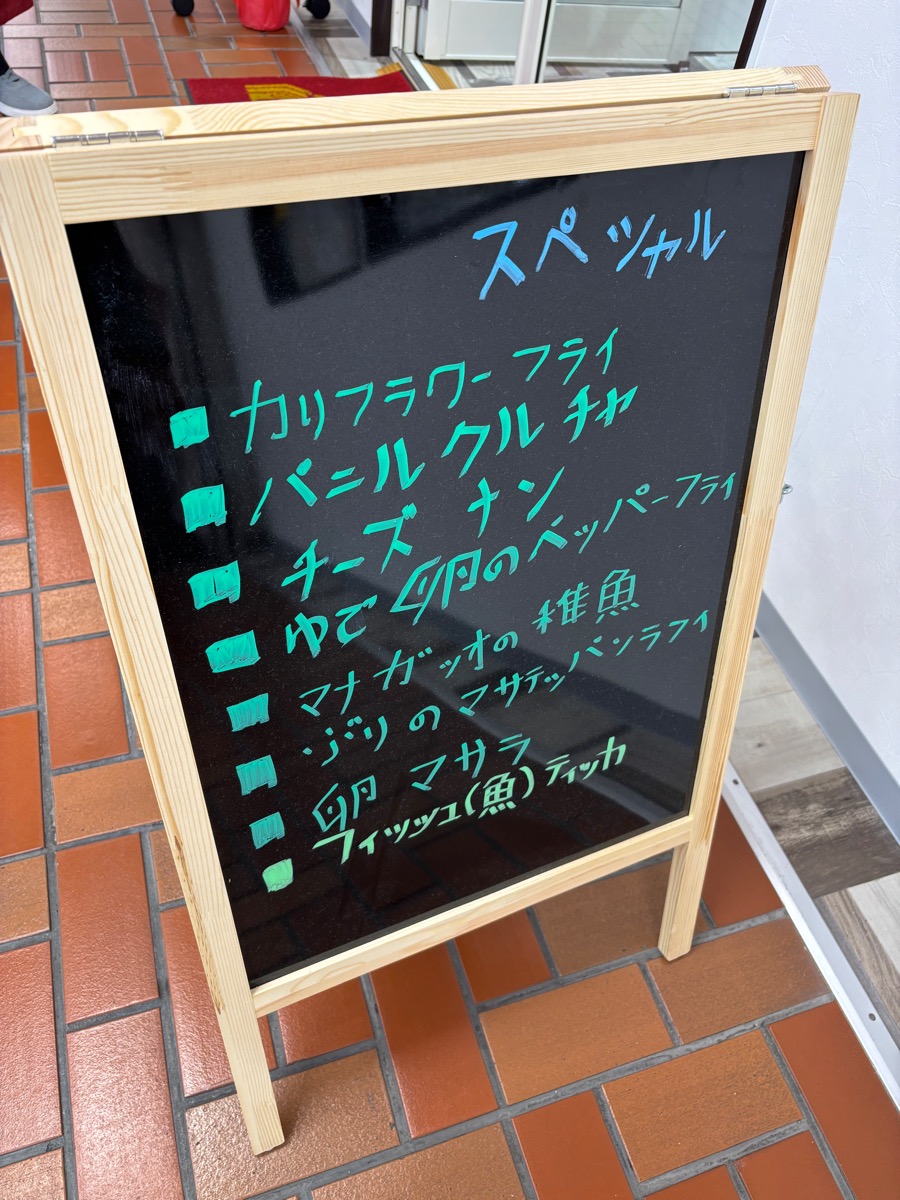 スペッャル
■ カリフラワー フライ
■ パニル クルチャ
■ チーズ ナン
■ ゆで卵のペッパーフライ
■ マナガッオの稚魚
■ ぶりのマサテッパンラフイ
■ 卵 マサラ
■ フィッッュ(魚)ティッカ